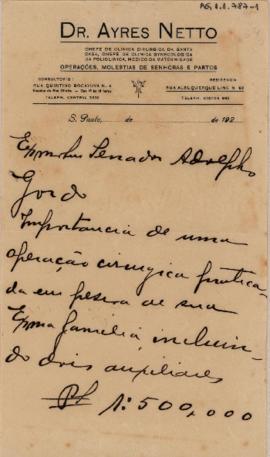 AG.1.1.787-1
DR. AYRES NETTO
CHEFE DE CLINICA CIRURGICA DA SANTA
CASA, CHEFE DE CLINICA GYNECOLOGICA
DA POLICLINICA, MEDICO DA MATERNIDADE
OPERAÇÕES, MOLESTIAS DE SENHORAS E PARTOS
CONSULTORIO:
RUA QUINTINO BOCAYUVA N. 4
TELEPH. CENTRAL
RESIDENCIA
RUA ALBUQUERQUE LINS, N. 92
TELEPH. CIDADE
S. Paulo, de de 192
Exmo Snr Senador Adolpho
Gordo
Importancia de uma
operação cirurgica pratica-
da em pessoa de sua
Exma familia, incluin-
do dois auxiliares
1:500,000